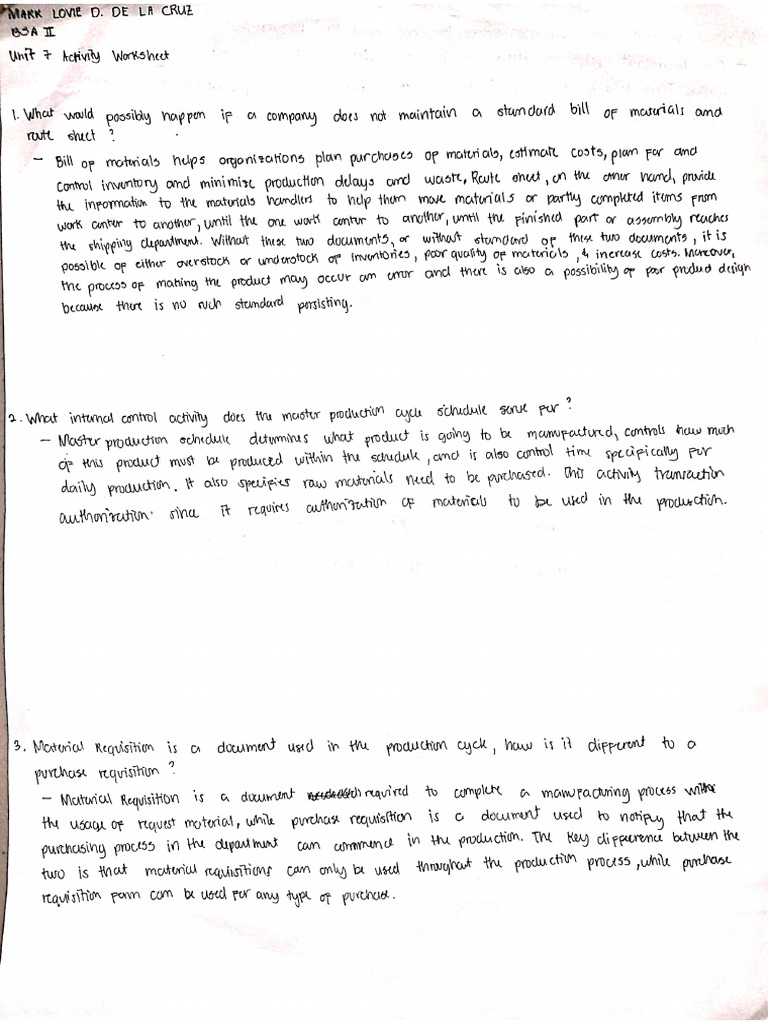 MARK LOVIE D. DE LA CRUZ
BSA II
Unit 7 Activity Worksheet
1. What would possibly happen if a company does not maintain a standard bill of materials and
route sheet?
- Bill of materials helps organizations plan purchases of materials, estimate costs, plan for and
control inventory and minimize production delays and waste, Route sheet, on the other hand, provide
the information to the materials handlers to help them move materials or partly completed items from
work center to another, until the one work center to another, until the finished part or assembly reaches
the shipping department. Without these two documents, or without standard of these two documents, it is
possible of either overstock or understock of inventories, poor quality of materials, & increase costs. Moreover,
the process of making the product may occur an error and there is also a possibility of poor product design
because there is no such standard persisting.
2. What internal control activity does the master production cycle schedule serve for?
- Master production schedule determines what product is going to be manufactured, controls how much
of this product must be produced within the schedule, and is also control time specifically for
daily production. It also specifies raw materials need to be purchased. This activity transaction
authorization. since it requires authorization of materials to be used in the production.
3. Material Requisition is a document used in the production cycle, how is it different to a
purchase requisition?
- Material Requisition is a document required to complete a manufacturing process
the usage of request material, while purchase requisition is a document used to notify that the
purchasing process in the department can commence in the production. The key difference between the
two is that material requisitions can only be used throughout the production process, while purchase
requisition form can be used for any type of purchase.